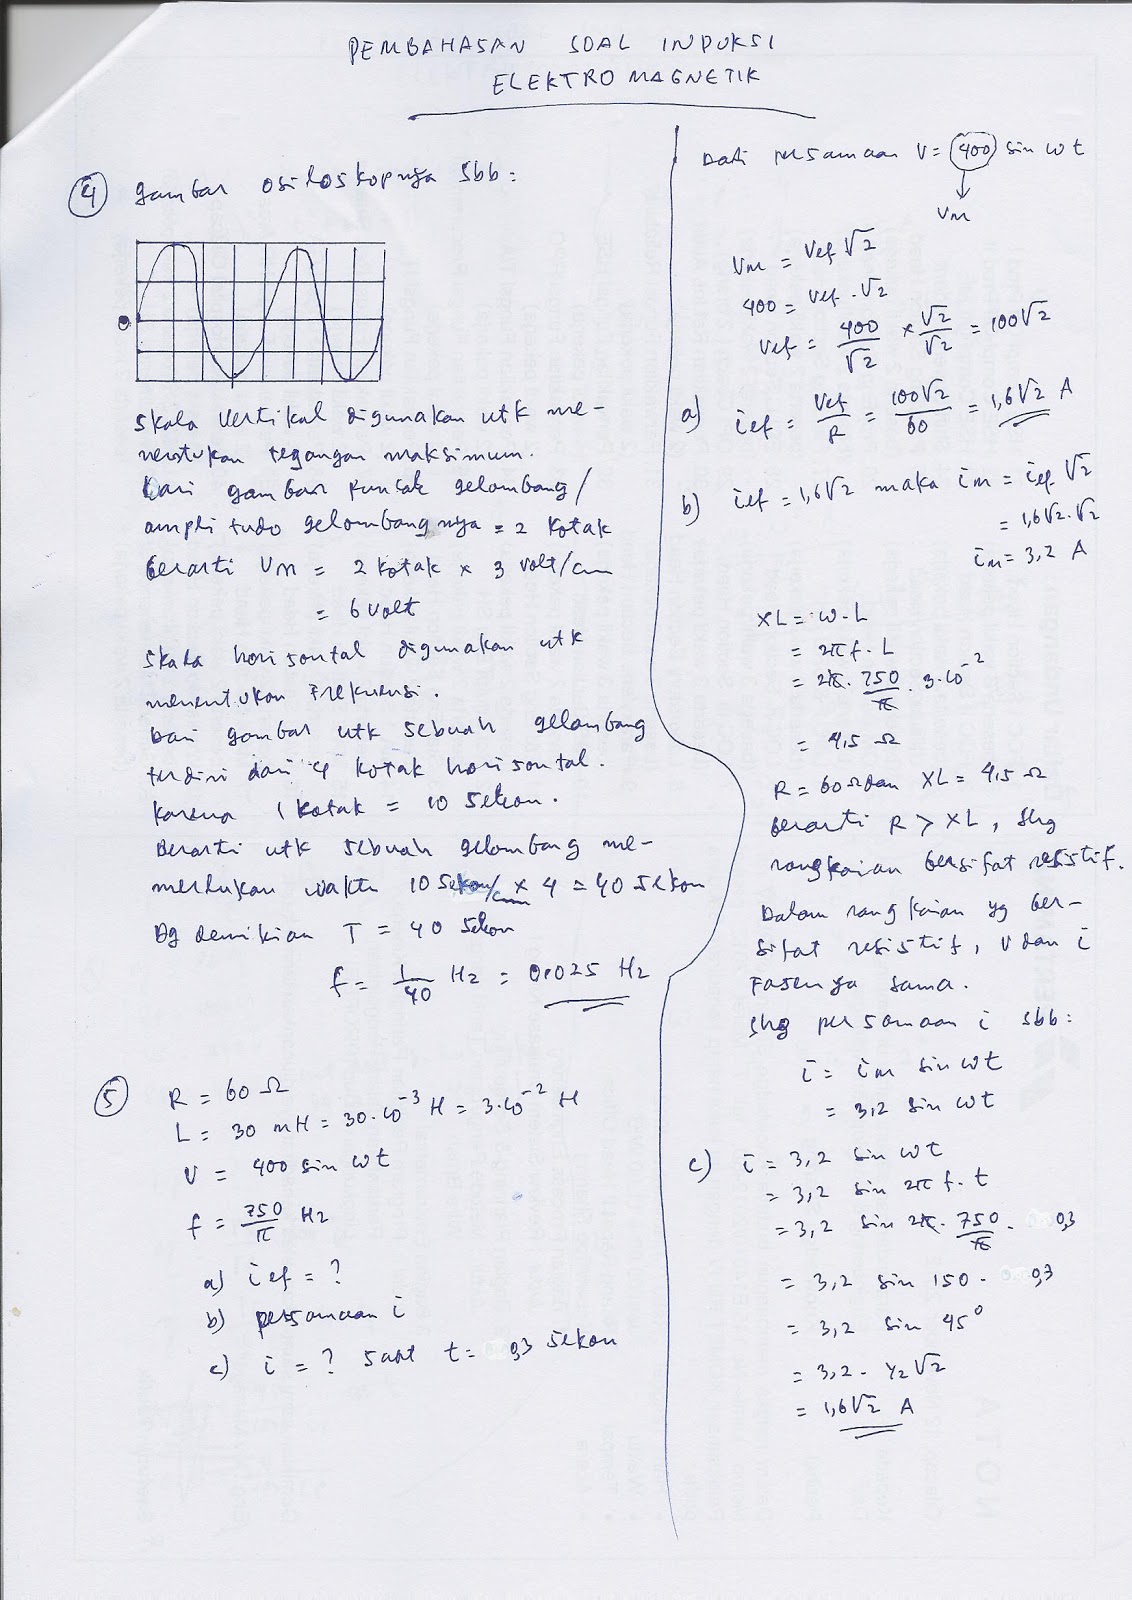 PEMBAHASAN SOAL INDUKSI
ELEKTRO MAGNETIK
④ gambar osiloskopnya sbb:
Skala vertikal digunakan utk me-
nentukan tegangan maksimum.
Dari gambar puncak gelombang/
amplitudo gelombangnya = 2 kotak
berarti Vm = 2 kotak × 3 volt/cm
= 6 volt
Skala horisontal digunakan utk
menentukan frekuensi.
Dari gambar utk sebuah gelombang
terdiri dari 4 kotak horisontal.
Karena 1 kotak = 10 sekon.
Berarti utk sebuah gelombang me-
merlukan waktu 10 sekon/cm × 4 = 40 sekon
Dg demikian T = 40 sekon
f = 1/40 Hz = 0.025 Hz
⑤ R = 60 Ω
L = 30 mH = 30·10⁻³ H = 3·10⁻² H
V = 400 sin ωt
f = 750/π Hz
a) ief = ?
b) persamaan i
c) i = ? saat t = 0,3 sekon
Dari persamaan V = 400 sin ωt
↓
Vm
Vm = Vef √2
400 = Vef . √2
Vef = 400/√2 × √2/√2 = 100√2
a) ief = Vef/R = 100√2/60 = 1,6√2 A
b) ief = 1,6√2 maka im = ief √2
= 1,6√2.√2
im = 3,2 A
XL = ω.L
= 2πf. L
= 2π. 750/π . 3·10⁻²
= 4,5 Ω
R = 60 Ω dan XL = 4,5 Ω
berarti R > XL, shg
rangkaian bersifat resistif.
Dalam rangkaian yg ber-
sifat resistif, V dan i
Fasenya sama.
Shg persamaan i sbb:
i = im sin ωt
= 3,2 sin ωt
c) i = 3,2 sin ωt
= 3,2 sin 2π f. t
= 3,2 sin 2π. 750/π . 0,3
= 3,2 sin 150 . 0,3
= 3,2 sin 45°
= 3,2 . ½√2
= 1,6√2 A